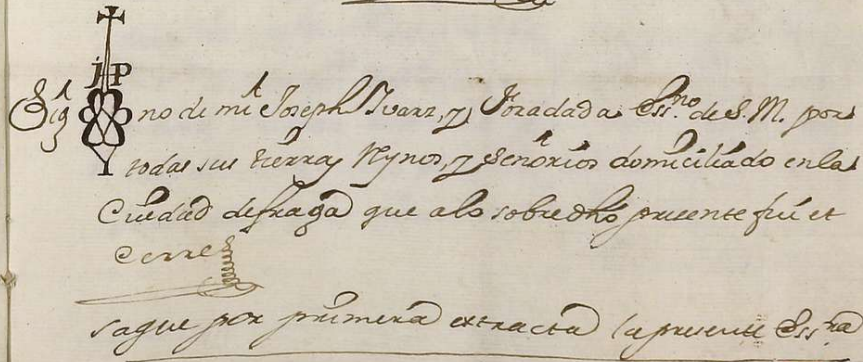 JP
Sig no de mi Joseph Ivarz, y Foradada Ess.no de S. M. por
todas sus tierras Rynos, y Señorios domiciliado en la
Ciudad de fraga que a lo sobredho presente fui et
cerre
saque por primera extracta la presente Ess.ra